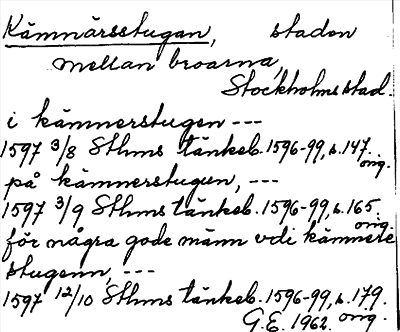 Kämnärsstugan, staden
mellan broarna,
Stockholms stad.
i kämnerstugen ---
1597 3/8 Sthms tänkeb. 1596-99, s. 147.
orig.
på kämnerstugun, ---
1597 3/9 Sthms tänkeb. 1596-99, s. 165.
orig.
för några gode männ vdi kämnere
stugenn, ---
1597 12/10 Sthms tänkeb. 1596-99, s. 179.
G.E. 1962. orig.